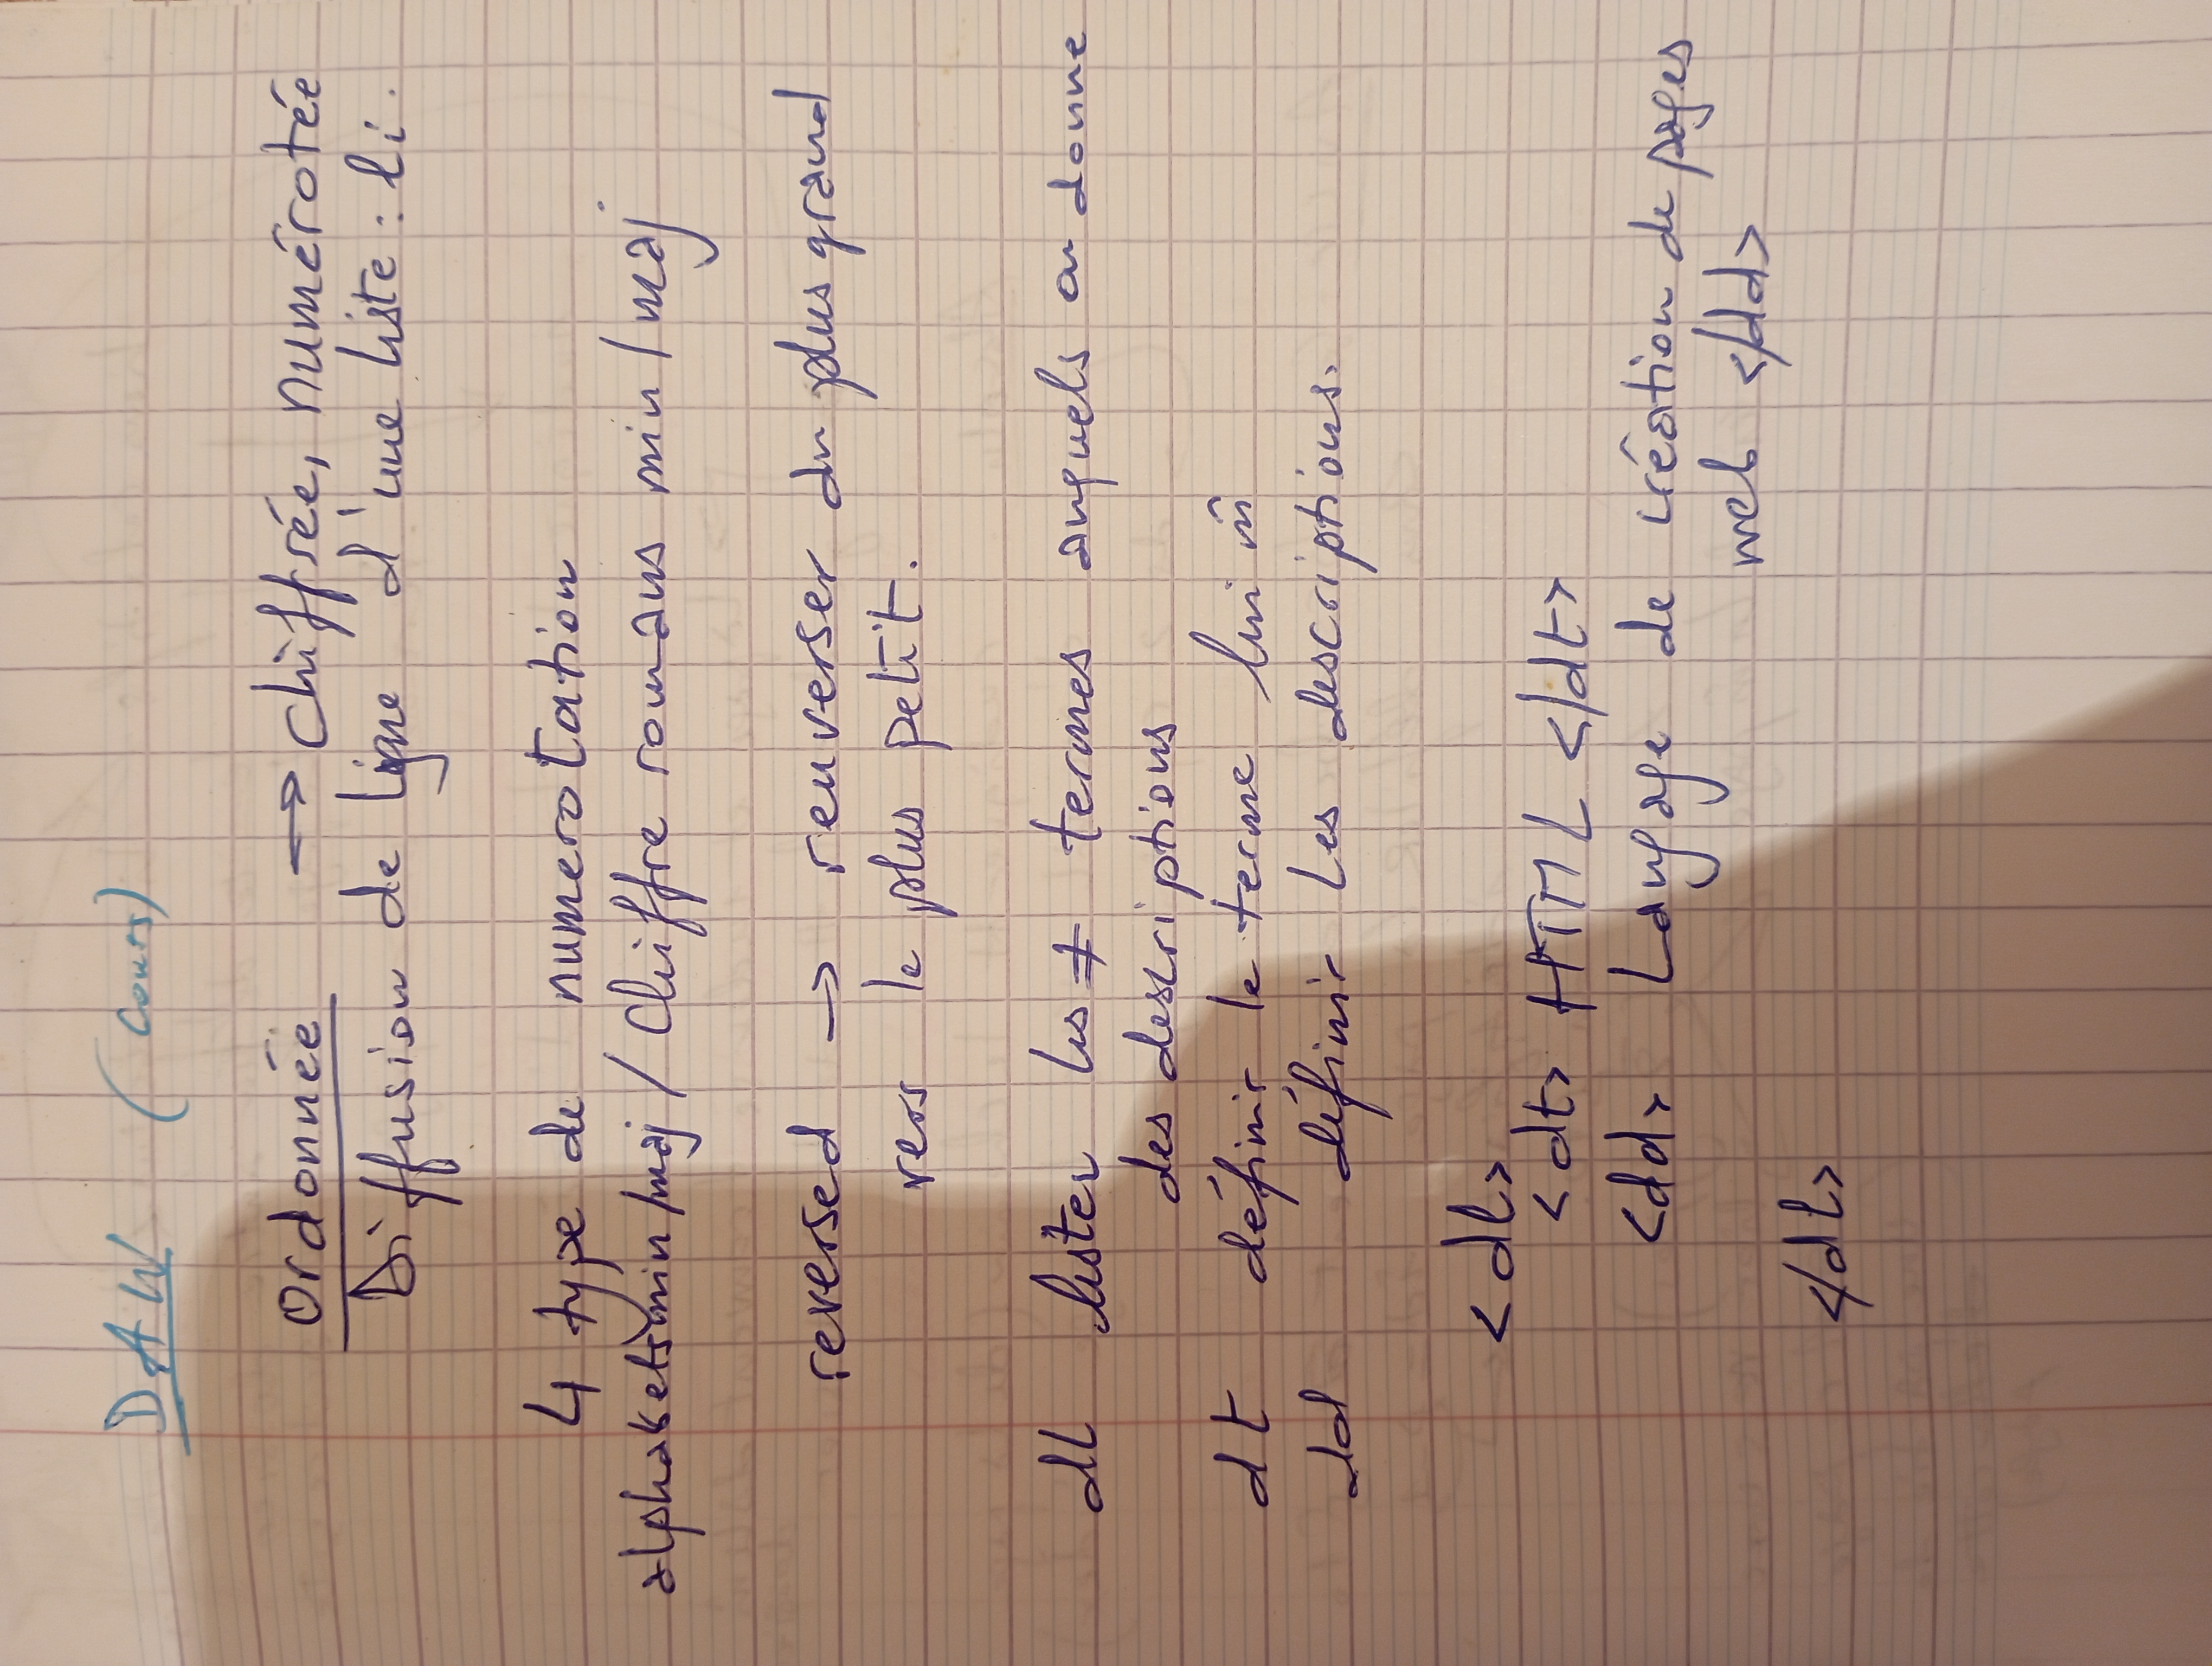 DAW (Cours)
Ordonnée → chiffrée, numérotée
Diffusion de ligne d'une liste : li.
4 type de numerotation
alphabets min/maj / Chiffre romans min/maj
reversed → renverser du plus grand
vers le plus petit.
dl lister les ≠ termes auquels on donne
des descriptions
dt définir le terme lui m̂
dd définir les descriptions.
<dl>
<dt> HTML </dt>
<dd> Langage de création de pages
web </dd>
</dl>